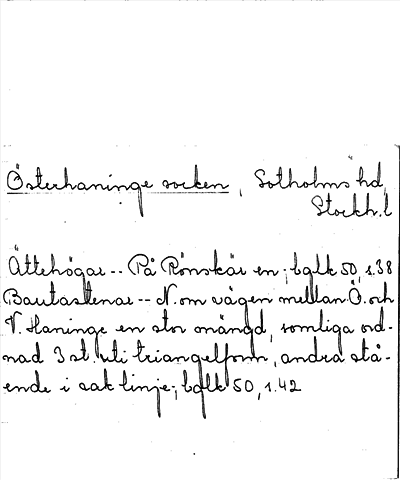 Österhaninge socken, Sotholms hd,
Stockh. l
Ättehögar -- På Rönskär en; bglk 50, s. 38
Bautastenar -- N. om vägen mellan Ö. och
V. Haninge en stor mängd, somliga ord-
nad 3 st. uti triangelform, andra stå-
ende i rak linje; bglk 50, s. 42